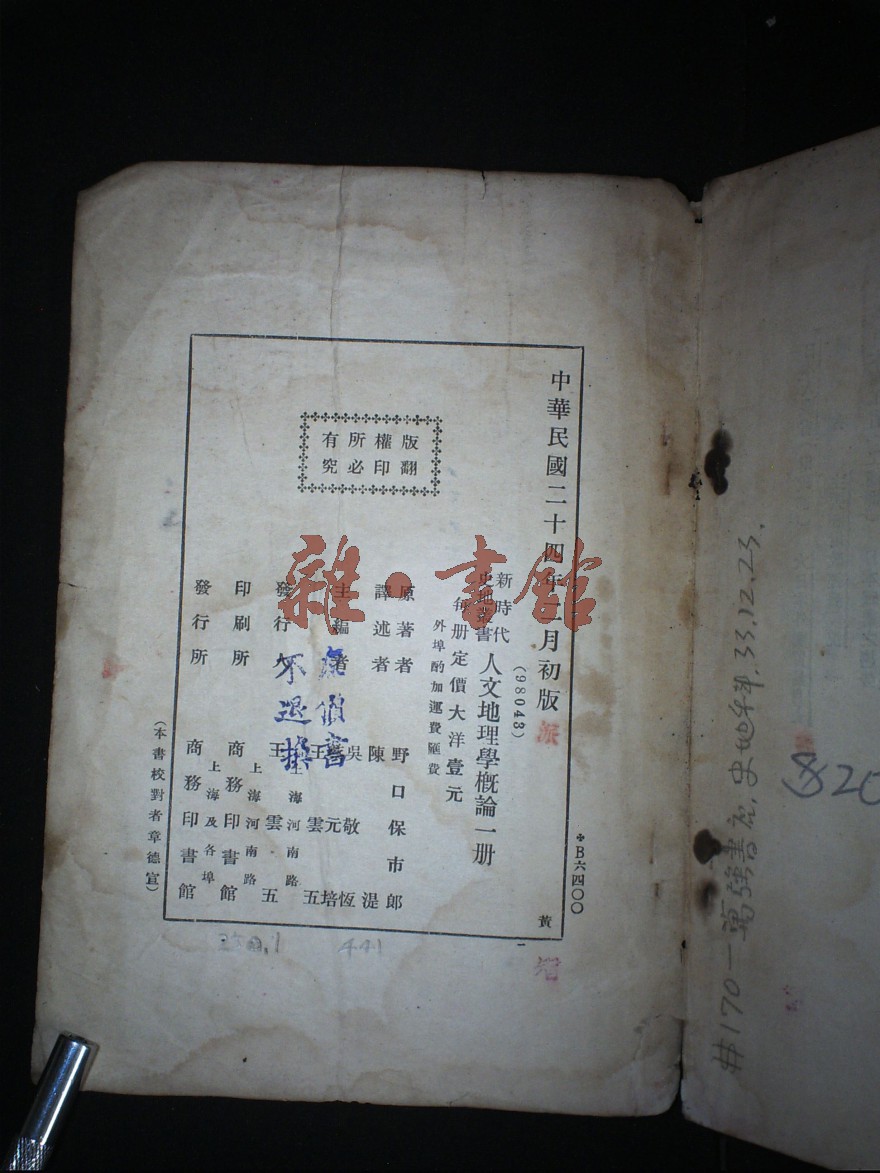 中華民國二十四年二月初版
(98043)
新時代
史地叢書
人文地理學概論一册
每册定價大洋壹元
外埠酌加運費匯費
版權所有
翻印必究
原著者 野口保市郎
譯述者 陳湜
主編者 吳敬恆
元培
王雲五
發行人 王雲五
上海河南路
印刷所 商務印書館
上海河南路
發行所 商務印書館
上海及各埠
(本書校對者章德宣)
B六四〇〇
黃
一
廉價書
不退換
雜·書館
441
#170一萬
33.12.23.
820